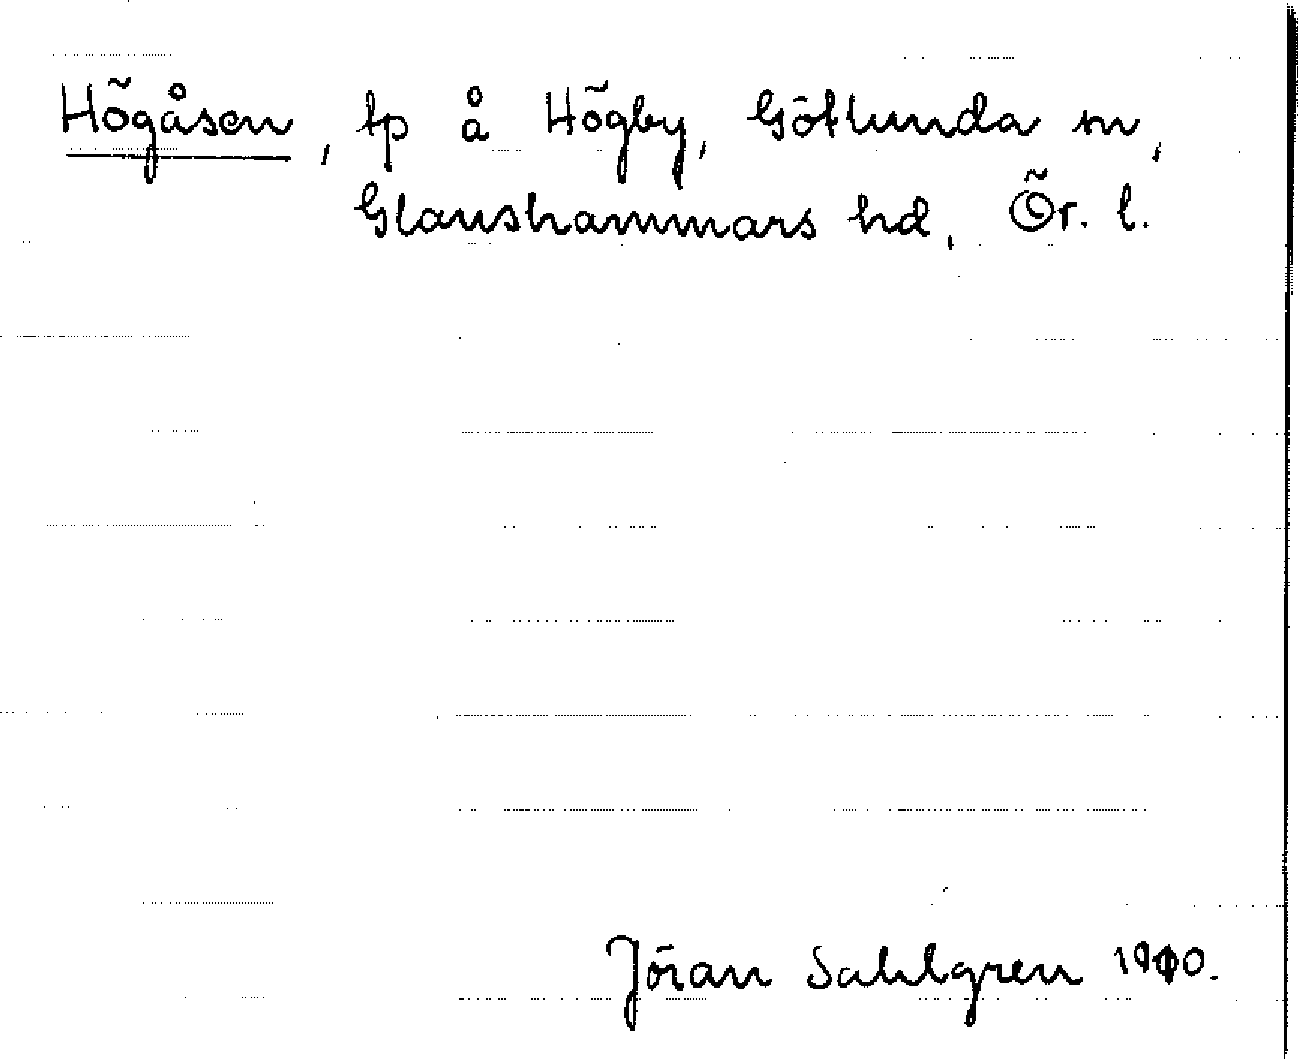 Högåsen, tp å Högby, Götlunda sn,
Glanshammars hd, Ör. l.
Jöran Sahlgren